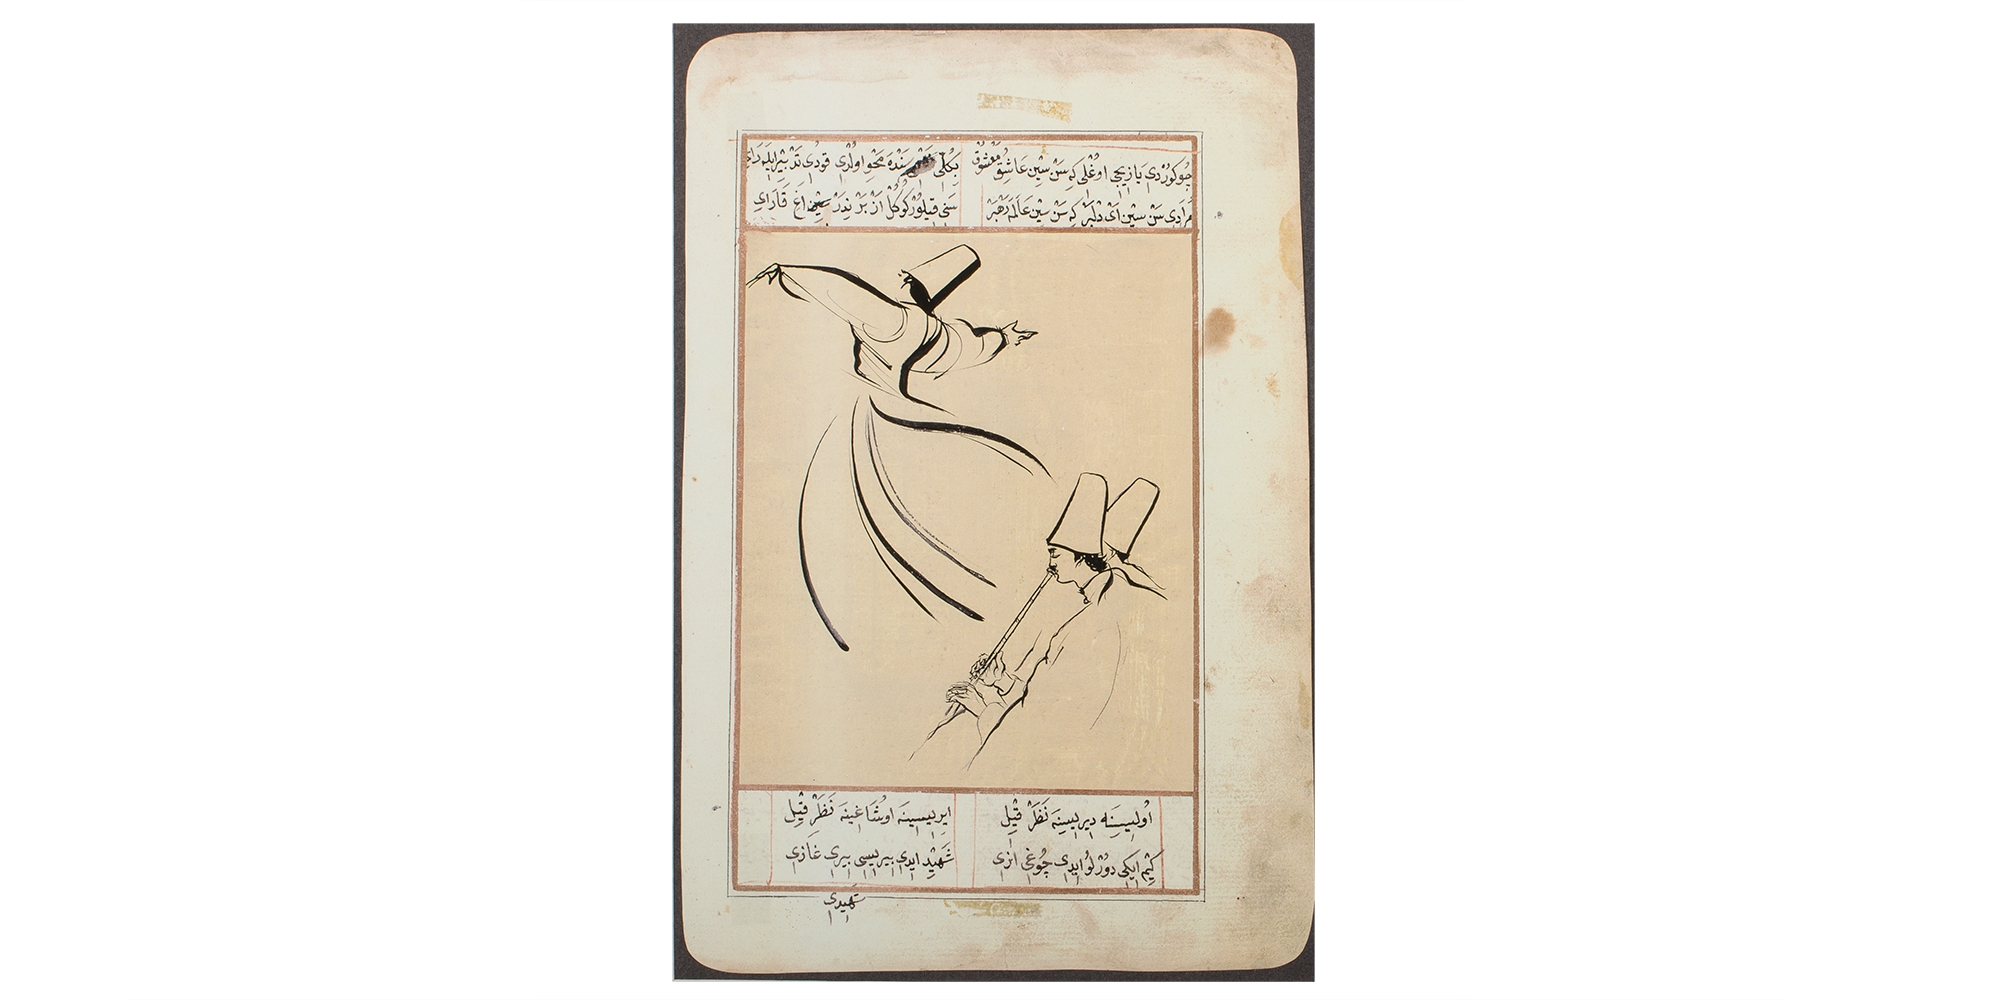 چو کوردی یازیجی اوغلی که سن سین عاشق معشوق بکلی سنده محو اولدی قودی تدبیرایله رای
مرادی سن سین ای دلبر که سن سین عالمه رهبر سنی قیلور کوکل ازبر ندر اغ قارای
اولیسینه دیریسینه نظر قیل ایریسینه اوشاغینه نظر قیل
کیم ایکی دورلو ایدی چوغی ازی شهید ایدی بیریسی بیری غازی
شهیدی